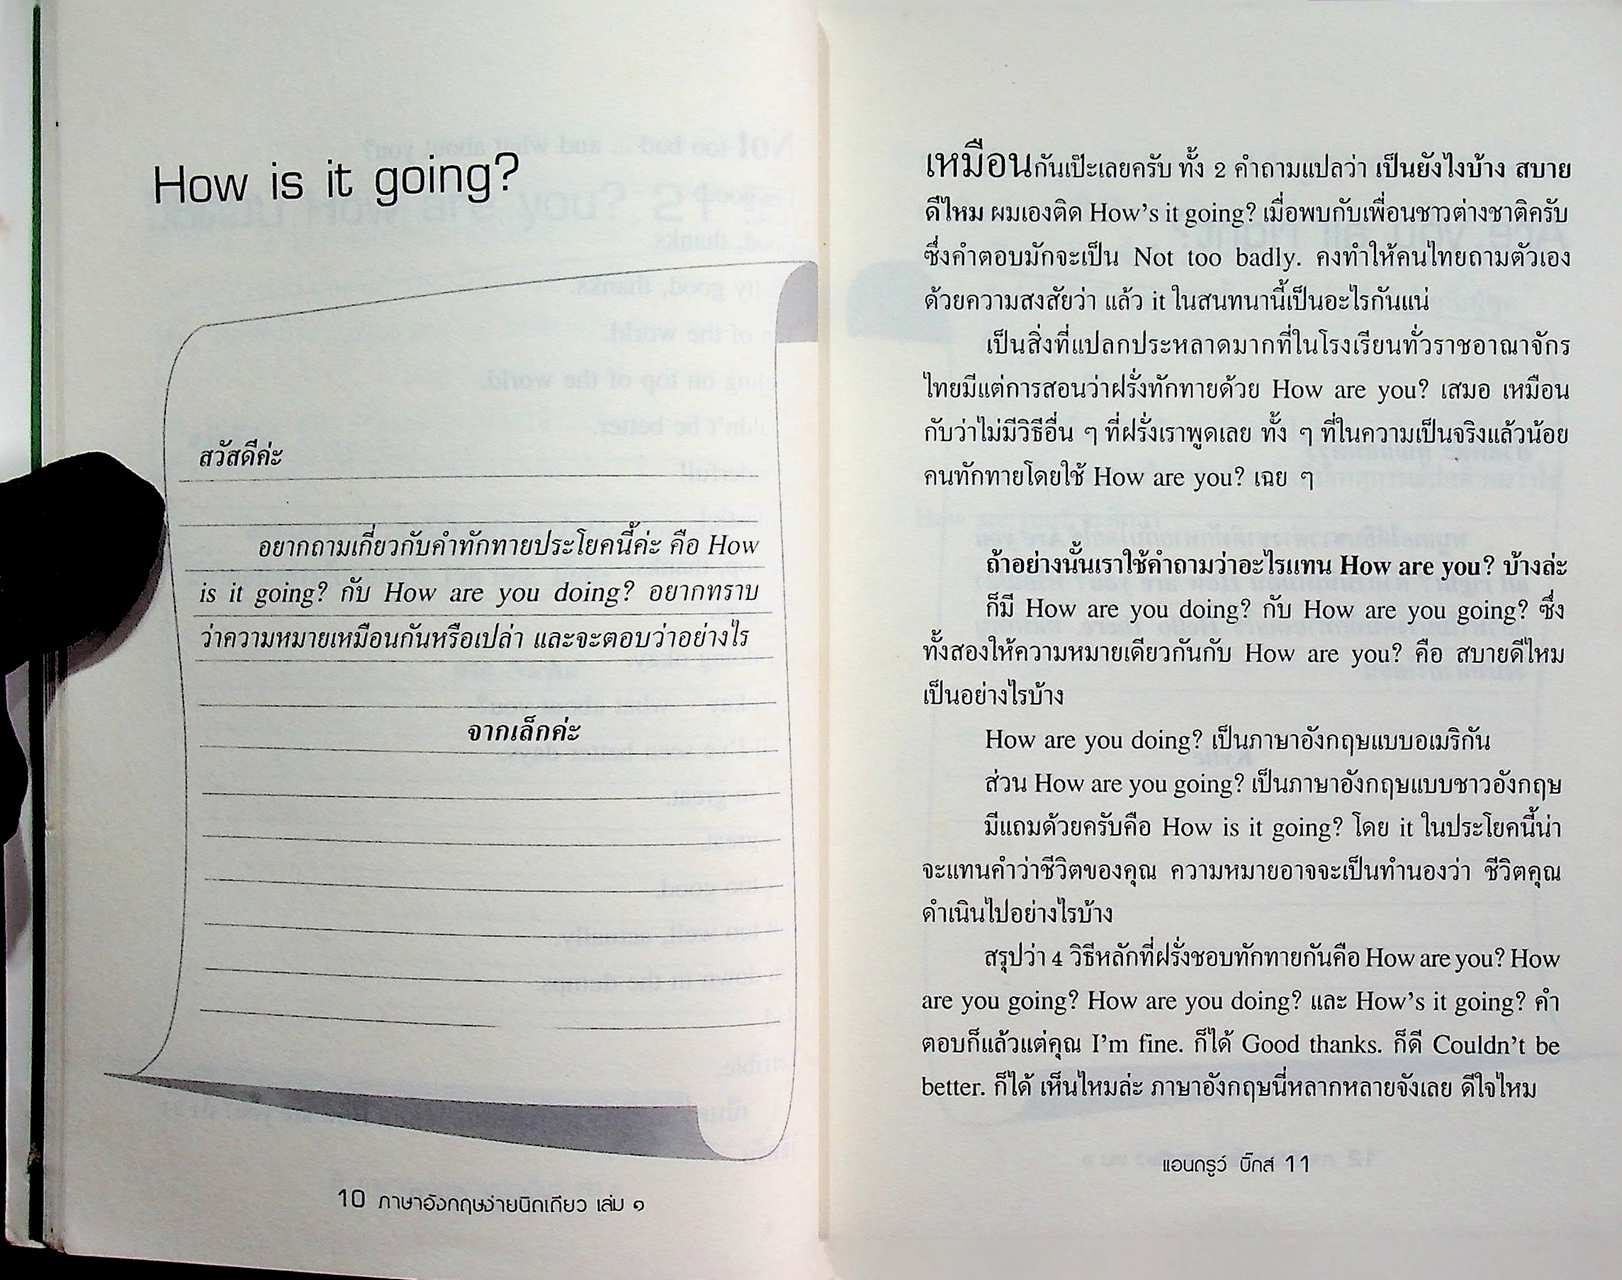 How is it going?
สวัสดีค่ะ
อยากถามเกี่ยวกับคำทักทายประโยคนี้ค่ะ คือ How
is it going? กับ How are you doing? อยากทราบ
ว่าความหมายเหมือนกันหรือเปล่า และจะตอบว่าอย่างไร
จากเล็กค่ะ
10 ภาษาอังกฤษง่ายนิดเดียว เล่ม ๑
เหมือนกันเป๊ะเลยครับ ทั้ง 2 คำถามแปลว่า เป็นยังไงบ้าง สบาย
ดีไหม ผมเองติด How's it going? เมื่อพบกับเพื่อนชาวต่างชาติครับ
ซึ่งคำตอบมักจะเป็น Not too badly. คงทำให้คนไทยถามตัวเอง
ด้วยความสงสัยว่า แล้ว it ในสนทนานี้เป็นอะไรกันแน่
เป็นสิ่งที่แปลกประหลาดมากที่ในโรงเรียนทั่วราชอาณาจักร
ไทยมีแต่การสอนว่าฝรั่งทักทายด้วย How are you? เสมอ เหมือน
กับว่าไม่มีวิธีอื่น ๆ ที่ฝรั่งเราพูดเลย ทั้ง ๆ ที่ในความเป็นจริงแล้วน้อย
คนทักทายโดยใช้ How are you? เฉย ๆ
ถ้าอย่างนั้นเราใช้คำถามว่าอะไรแทน How are you? บ้างล่ะ
ก็มี How are you doing? กับ How are you going? ซึ่ง
ทั้งสองให้ความหมายเดียวกันกับ How are you? คือ สบายดีไหม
เป็นอย่างไรบ้าง
How are you doing? เป็นภาษาอังกฤษแบบอเมริกัน
ส่วน How are you going? เป็นภาษาอังกฤษแบบชาวอังกฤษ
มีแถมด้วยครับคือ How is it going? โดย it ในประโยคนี้น่า
จะแทนคำว่าชีวิตของคุณ ความหมายอาจจะเป็นทำนองว่า ชีวิตคุณ
ดำเนินไปอย่างไรบ้าง
สรุปว่า 4 วิธีหลักที่ฝรั่งชอบทักทายกันคือ How are you? How
are you going? How are you doing? และ How's it going? คำ
ตอบก็แล้วแต่คุณ I'm fine. ก็ได้ Good thanks. ก็ดี Couldn't be
better. ก็ได้ เห็นไหมล่ะ ภาษาอังกฤษนี่หลากหลายจังเลย ดีใจไหม
แอนดรูว์ บิ๊กส์ 11